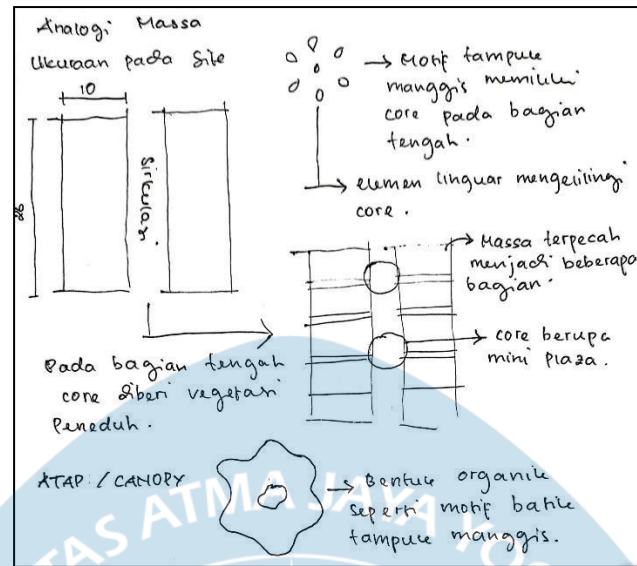 Analogi Massa
Ukuran pada Site
10
26
Sirkulasi
Motif tampuk
manggis memiliki
core pada bagian
tengah.
elemen linguar mengelilingi
core.
Massa terpecah
menjadi beberapa
bagian.
core berupa
mini plaza.
Pada bagian tengah
core diberi vegetasi
Peneduh.
ATAP / CANOPY
Bentuk organik
seperti motif batik
tampuk manggis.
TAS ATMA JAYA YO